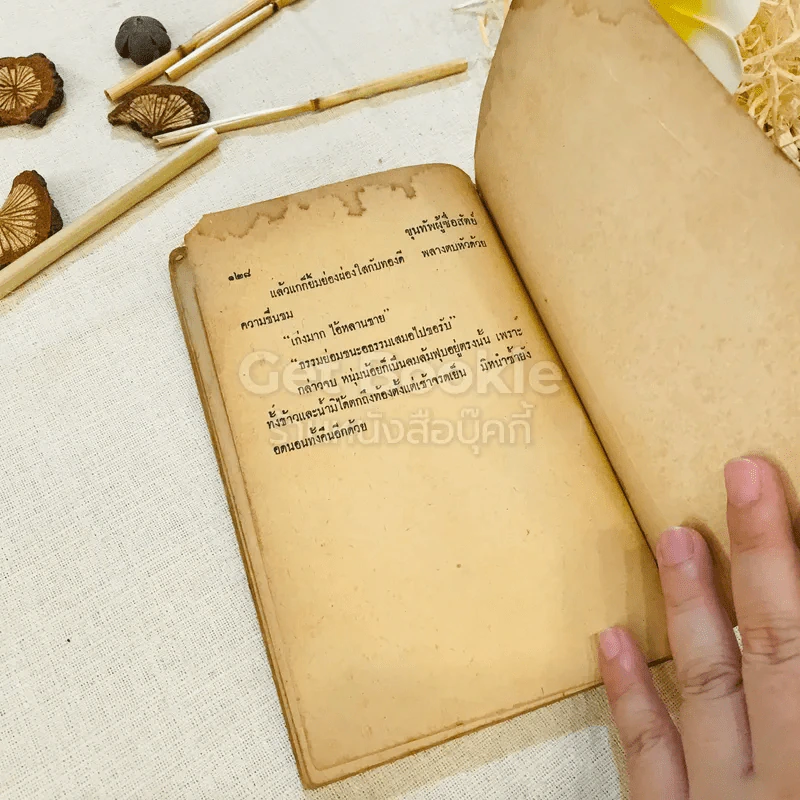 ขุนทัพผู้ซื่อสัตย์
๑๒๘
แล้วแกก็ยิ้มย่องผ่องใสกับทองดี พลางตบหัวด้วย
ความชื่นชม
"เก่งมาก ไอ้หลานชาย"
"ธรรมย่อมชนะอธรรมเสมอไปขอรับ"
กล่าวจบ หนุ่มน้อยก็เป็นลมล้มฟุบอยู่ตรงนั้น เพราะ
ทั้งข้าวและน้ำมิได้ตกถึงท้องตั้งแต่เช้าจรดเย็น มิหนำซ้ำยัง
อดนอนทั้งคืนอีกด้วย
Get Bookie
ร้านหนังสือบุ๊คกี้